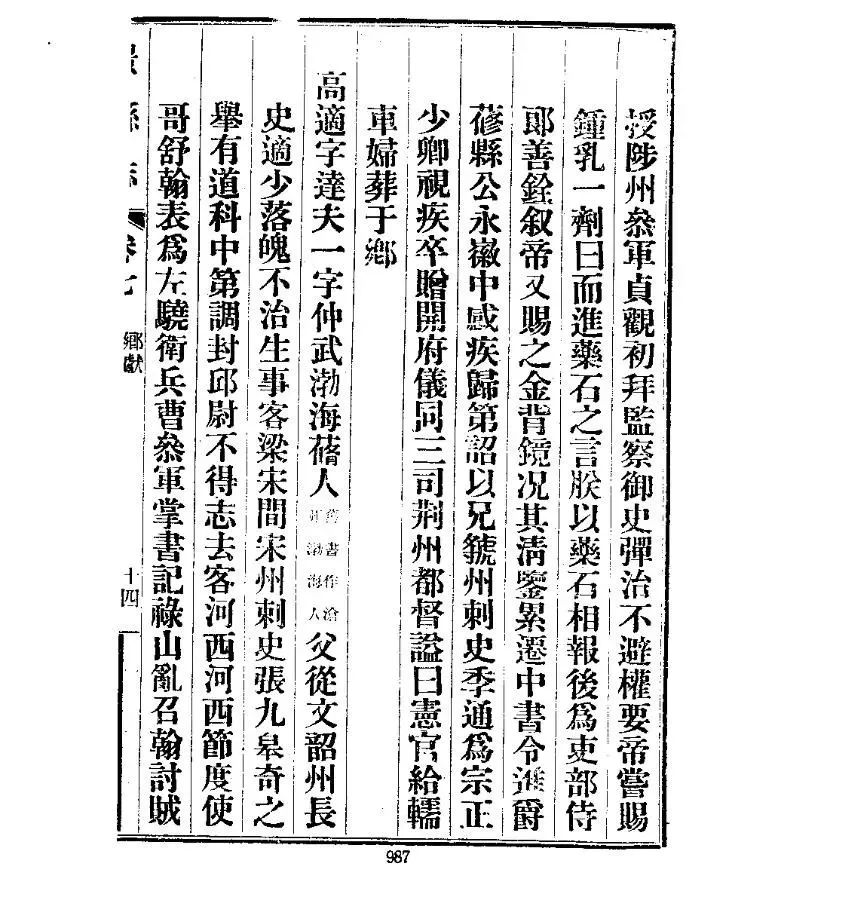 授陟州叅軍貞觀初拜監察御史彈治不避權要帝嘗賜
鍾乳一劑曰而進藥石之言朕以藥石相報後爲吏部侍
郎善銓叙帝又賜之金背鏡况其淸鑒累遷中書令進爵
蓨縣公永徽中感疾歸第詔以兄虢州刺史季通爲宗正
少卿視疾卒贈開府儀同三司荆州都督謚曰憲官給轜
車婦葬于鄉
高適字達夫一字仲武渤海蓨人舊書作滄州渤海人父從文韶州長
史適少落魄不治生事客梁宋間宋州刺史張九皋奇之
舉有道科中第調封邱尉不得志去客河西河西節度使
哥舒翰表爲左驍衛兵曹叅軍掌書記祿山亂召翰討賊
縣志 卷七 鄉獻 十四
987